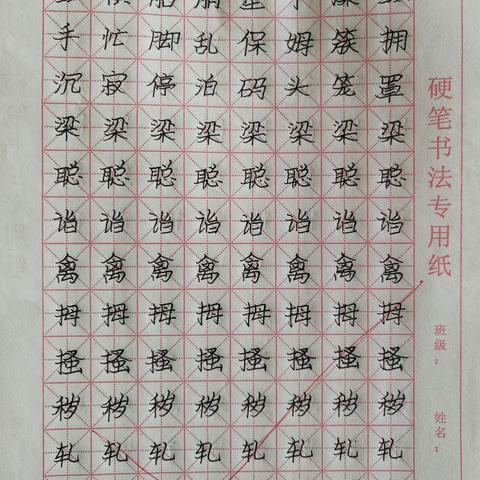 手忙脚乱保姆簇拥
沉寂停泊码头笼罩
梁梁梁梁梁梁梁梁
聪聪聪聪聪聪聪聪
诣诣诣诣诣诣诣诣
禽禽禽禽禽禽禽禽
拇拇拇拇拇拇拇拇
搔搔搔搔搔搔搔搔
秽秽秽秽秽秽秽秽
轧轧轧轧轧轧轧轧
硬笔书法专用纸
班级：
姓名：